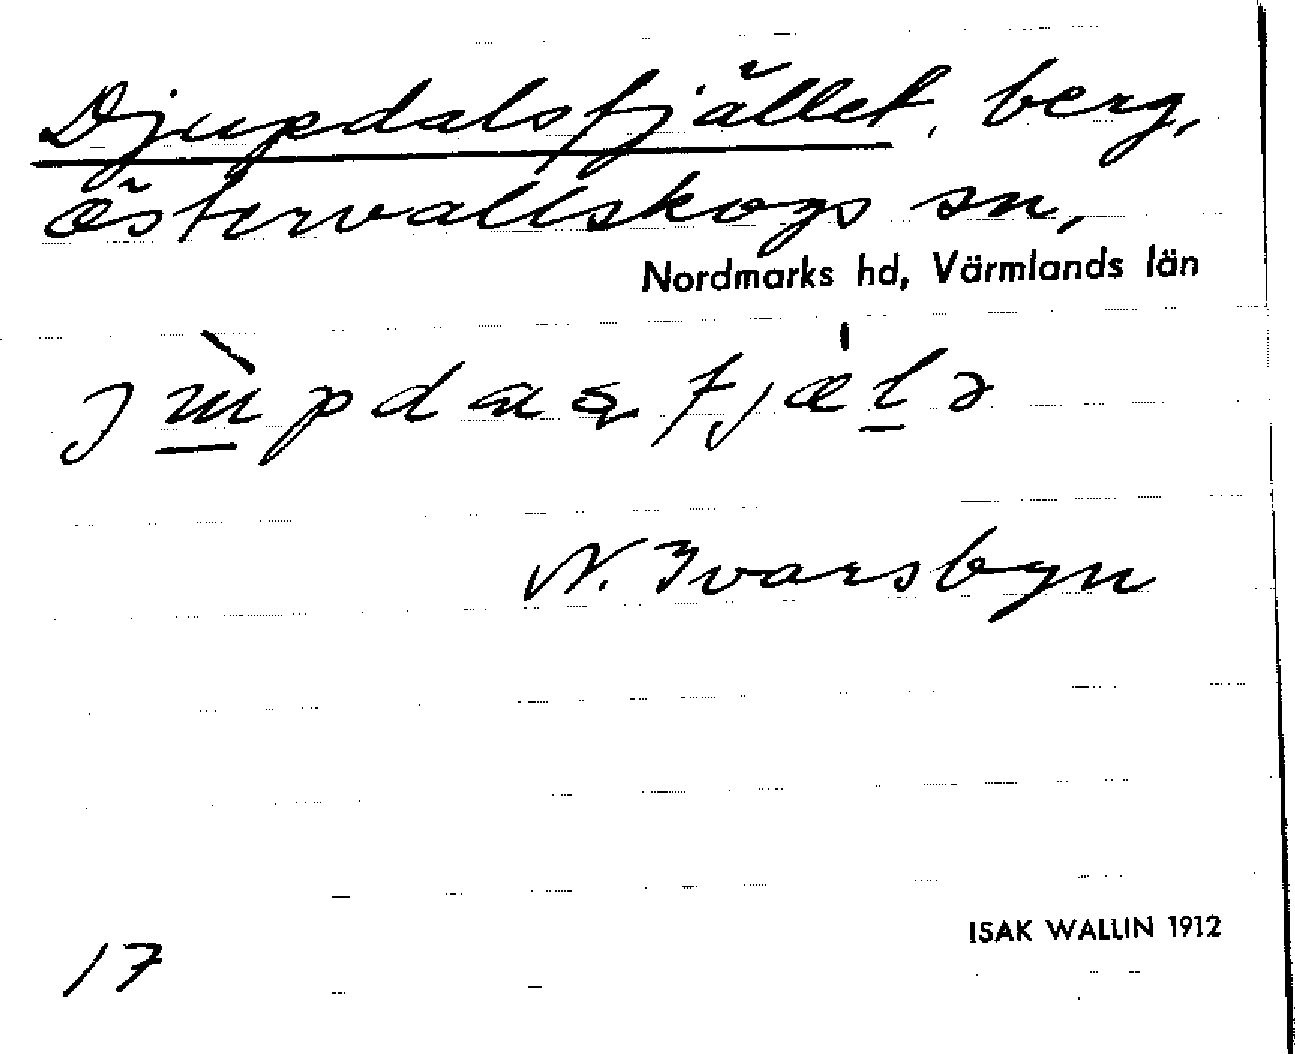 Djupdalsfjället, berg,
Östervallskogs sn,
Nordmarks hd, Värmlands län
N. Ivarsbyn
ISAK WALLIN 1912
17